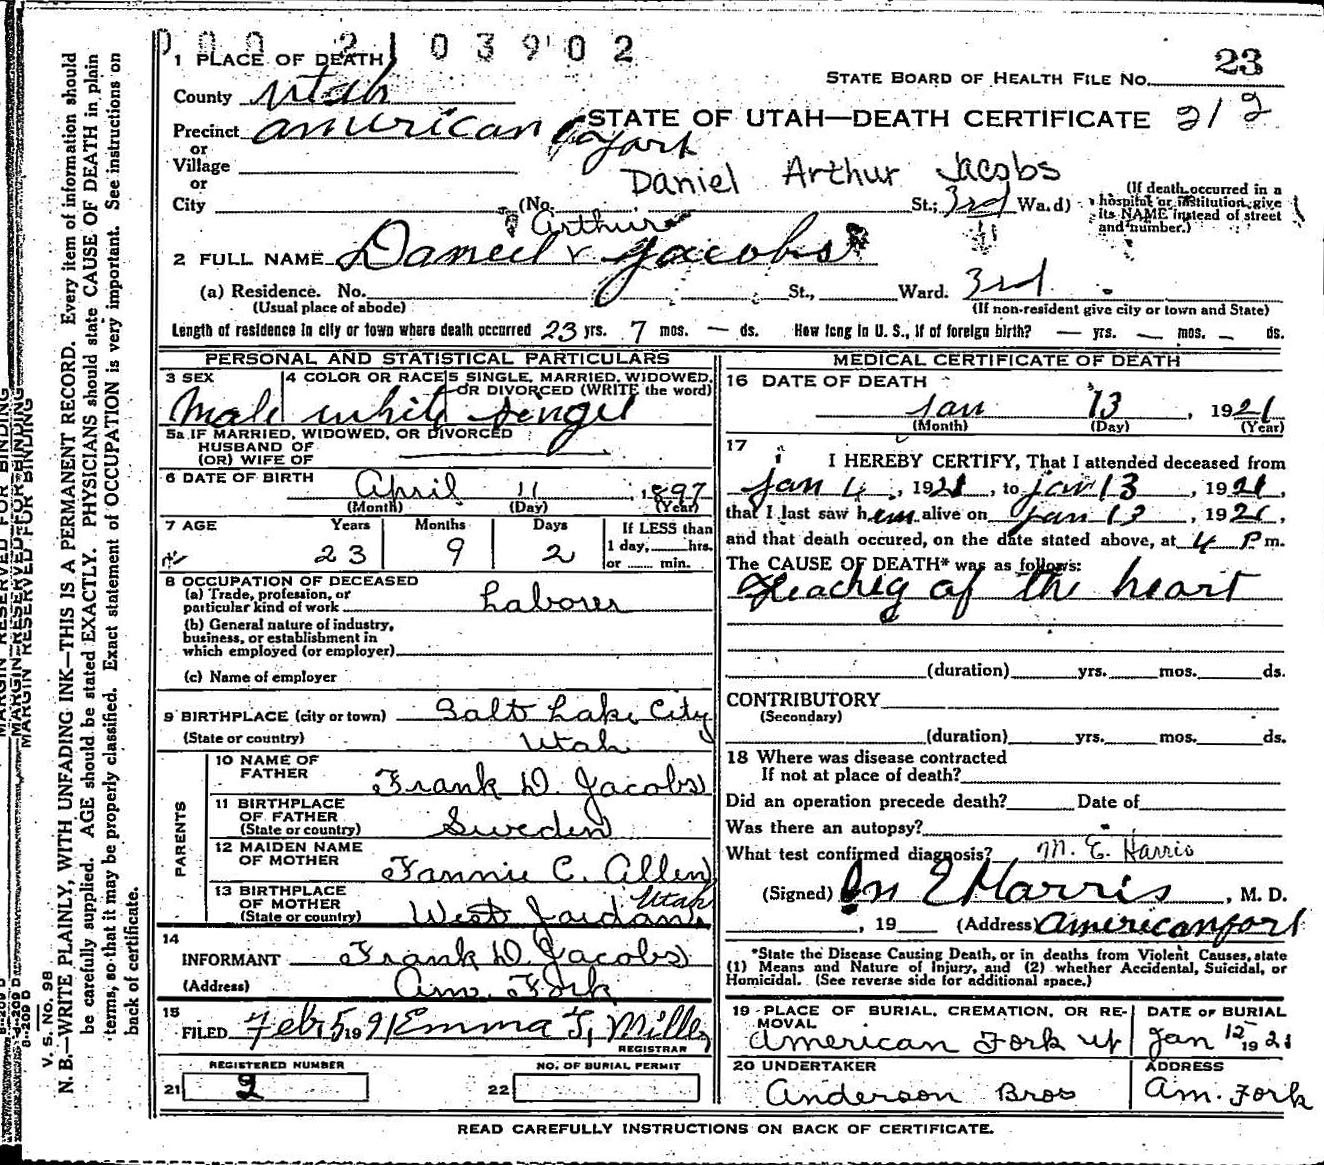 000 2103902
1 PLACE OF DEATH
STATE BOARD OF HEALTH FILE No. 23
County Utah
STATE OF UTAH—DEATH CERTIFICATE 212
Precinct American Fork
or
Village
Daniel Arthur Jacobs
or
City (No. St.; 3rd Ward)
(If death occurred in a hospital or institution, give its NAME instead of street and number.)
Arthur
2 FULL NAME Daniel Jacobs
(a) Residence. No. St., Ward. 3rd
(Usual place of abode) (If non-resident give city or town and State)
Length of residence in city or town where death occurred 23 yrs. 7 mos. — ds. How long in U. S., if of foreign birth? — yrs. — mos. — ds.
PERSONAL AND STATISTICAL PARTICULARS
3 SEX 4 COLOR OR RACE 5 SINGLE, MARRIED, WIDOWED, OR DIVORCED (WRITE the word)
Male white Singel
5a IF MARRIED, WIDOWED, OR DIVORCED
HUSBAND OF
(OR) WIFE OF
6 DATE OF BIRTH
April 11, 1897
(Month) (Day) (Year)
7 AGE Years Months Days If LESS than
23 9 2 1 day, hrs.
or min.
8 OCCUPATION OF DECEASED
(a) Trade, profession, or
particular kind of work Laborer
(b) General nature of industry,
business, or establishment in
which employed (or employer)
(c) Name of employer
9 BIRTHPLACE (city or town) Salt Lake City
(State or country) Utah
PARENTS
10 NAME OF
FATHER Frank D. Jacobs
11 BIRTHPLACE
OF FATHER
(State or country) Sweden
12 MAIDEN NAME
OF MOTHER Fannie C. Allen
13 BIRTHPLACE
OF MOTHER Utah
(State or country) West Jordan
14
INFORMANT Frank D. Jacobs
(Address) Am. Fork
15
FILED Feb 5 1921 Emma T. Miller
REGISTRAR
REGISTERED NUMBER NO. OF BURIAL PERMIT
21 2 22
MEDICAL CERTIFICATE OF DEATH
16 DATE OF DEATH
Jan 13, 1921
(Month) (Day) (Year)
17
I HEREBY CERTIFY, That I attended deceased from
Jan 4, 1921, to Jan 13, 1921,
that I last saw him alive on Jan 13, 1921,
and that death occured, on the date stated above, at 4 P m.
The CAUSE OF DEATH* was as follows:
of the heart
(duration) yrs. mos. ds.
CONTRIBUTORY
(Secondary)
(duration) yrs. mos. ds.
18 Where was disease contracted
If not at place of death?
Did an operation precede death? Date of
Was there an autopsy?
What test confirmed diagnosis? M. E. Harris
(Signed) M E Harris, M. D.
, 19 (Address) Americanfork
*State the Disease Causing Death, or in deaths from Violent Causes, state
(1) Means and Nature of Injury, and (2) whether Accidental, Suicidal, or
Homicidal. (See reverse side for additional space.)
19 PLACE OF BURIAL, CREMATION, OR RE- DATE OF BURIAL
MOVAL
American Fork ut Jan 15 1921
20 UNDERTAKER ADDRESS
Anderson Bros Am. Fork
READ CAREFULLY INSTRUCTIONS ON BACK OF CERTIFICATE.
MARGIN RESERVED FOR BINDING
V. S. No. 98
N. B.—WRITE PLAINLY, WITH UNFADING INK—THIS IS A PERMANENT RECORD. Every item of information should
be carefully supplied. AGE should be stated EXACTLY. PHYSICIANS should state CAUSE OF DEATH in plain
terms, so that it may be properly classified. Exact statement of OCCUPATION is very important. See instructions on
back of certificate.